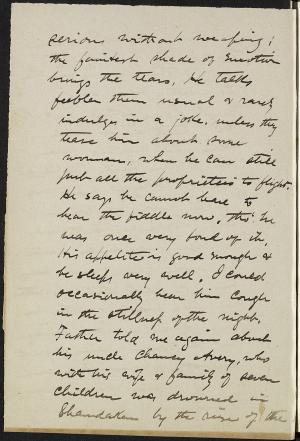 serious without weeping;
the faintest shade of emotion
brings the tears. He talks
feebler than usual & rarely
indulges in a joke, unless they
tease him about some
woman, when he can still
put all the proprieties to flight.
He says he cannot bear to
hear the fiddle now, tho' he
was once very fond of it.
His appetite is good enough &
he sleeps very well. I could
occasionally hear him cough
in the stillness of the night.
Father told me again about
his uncle Chancy Avery, who
with his wife & family of seven
children was drowned in
Shandaken by the rise of the